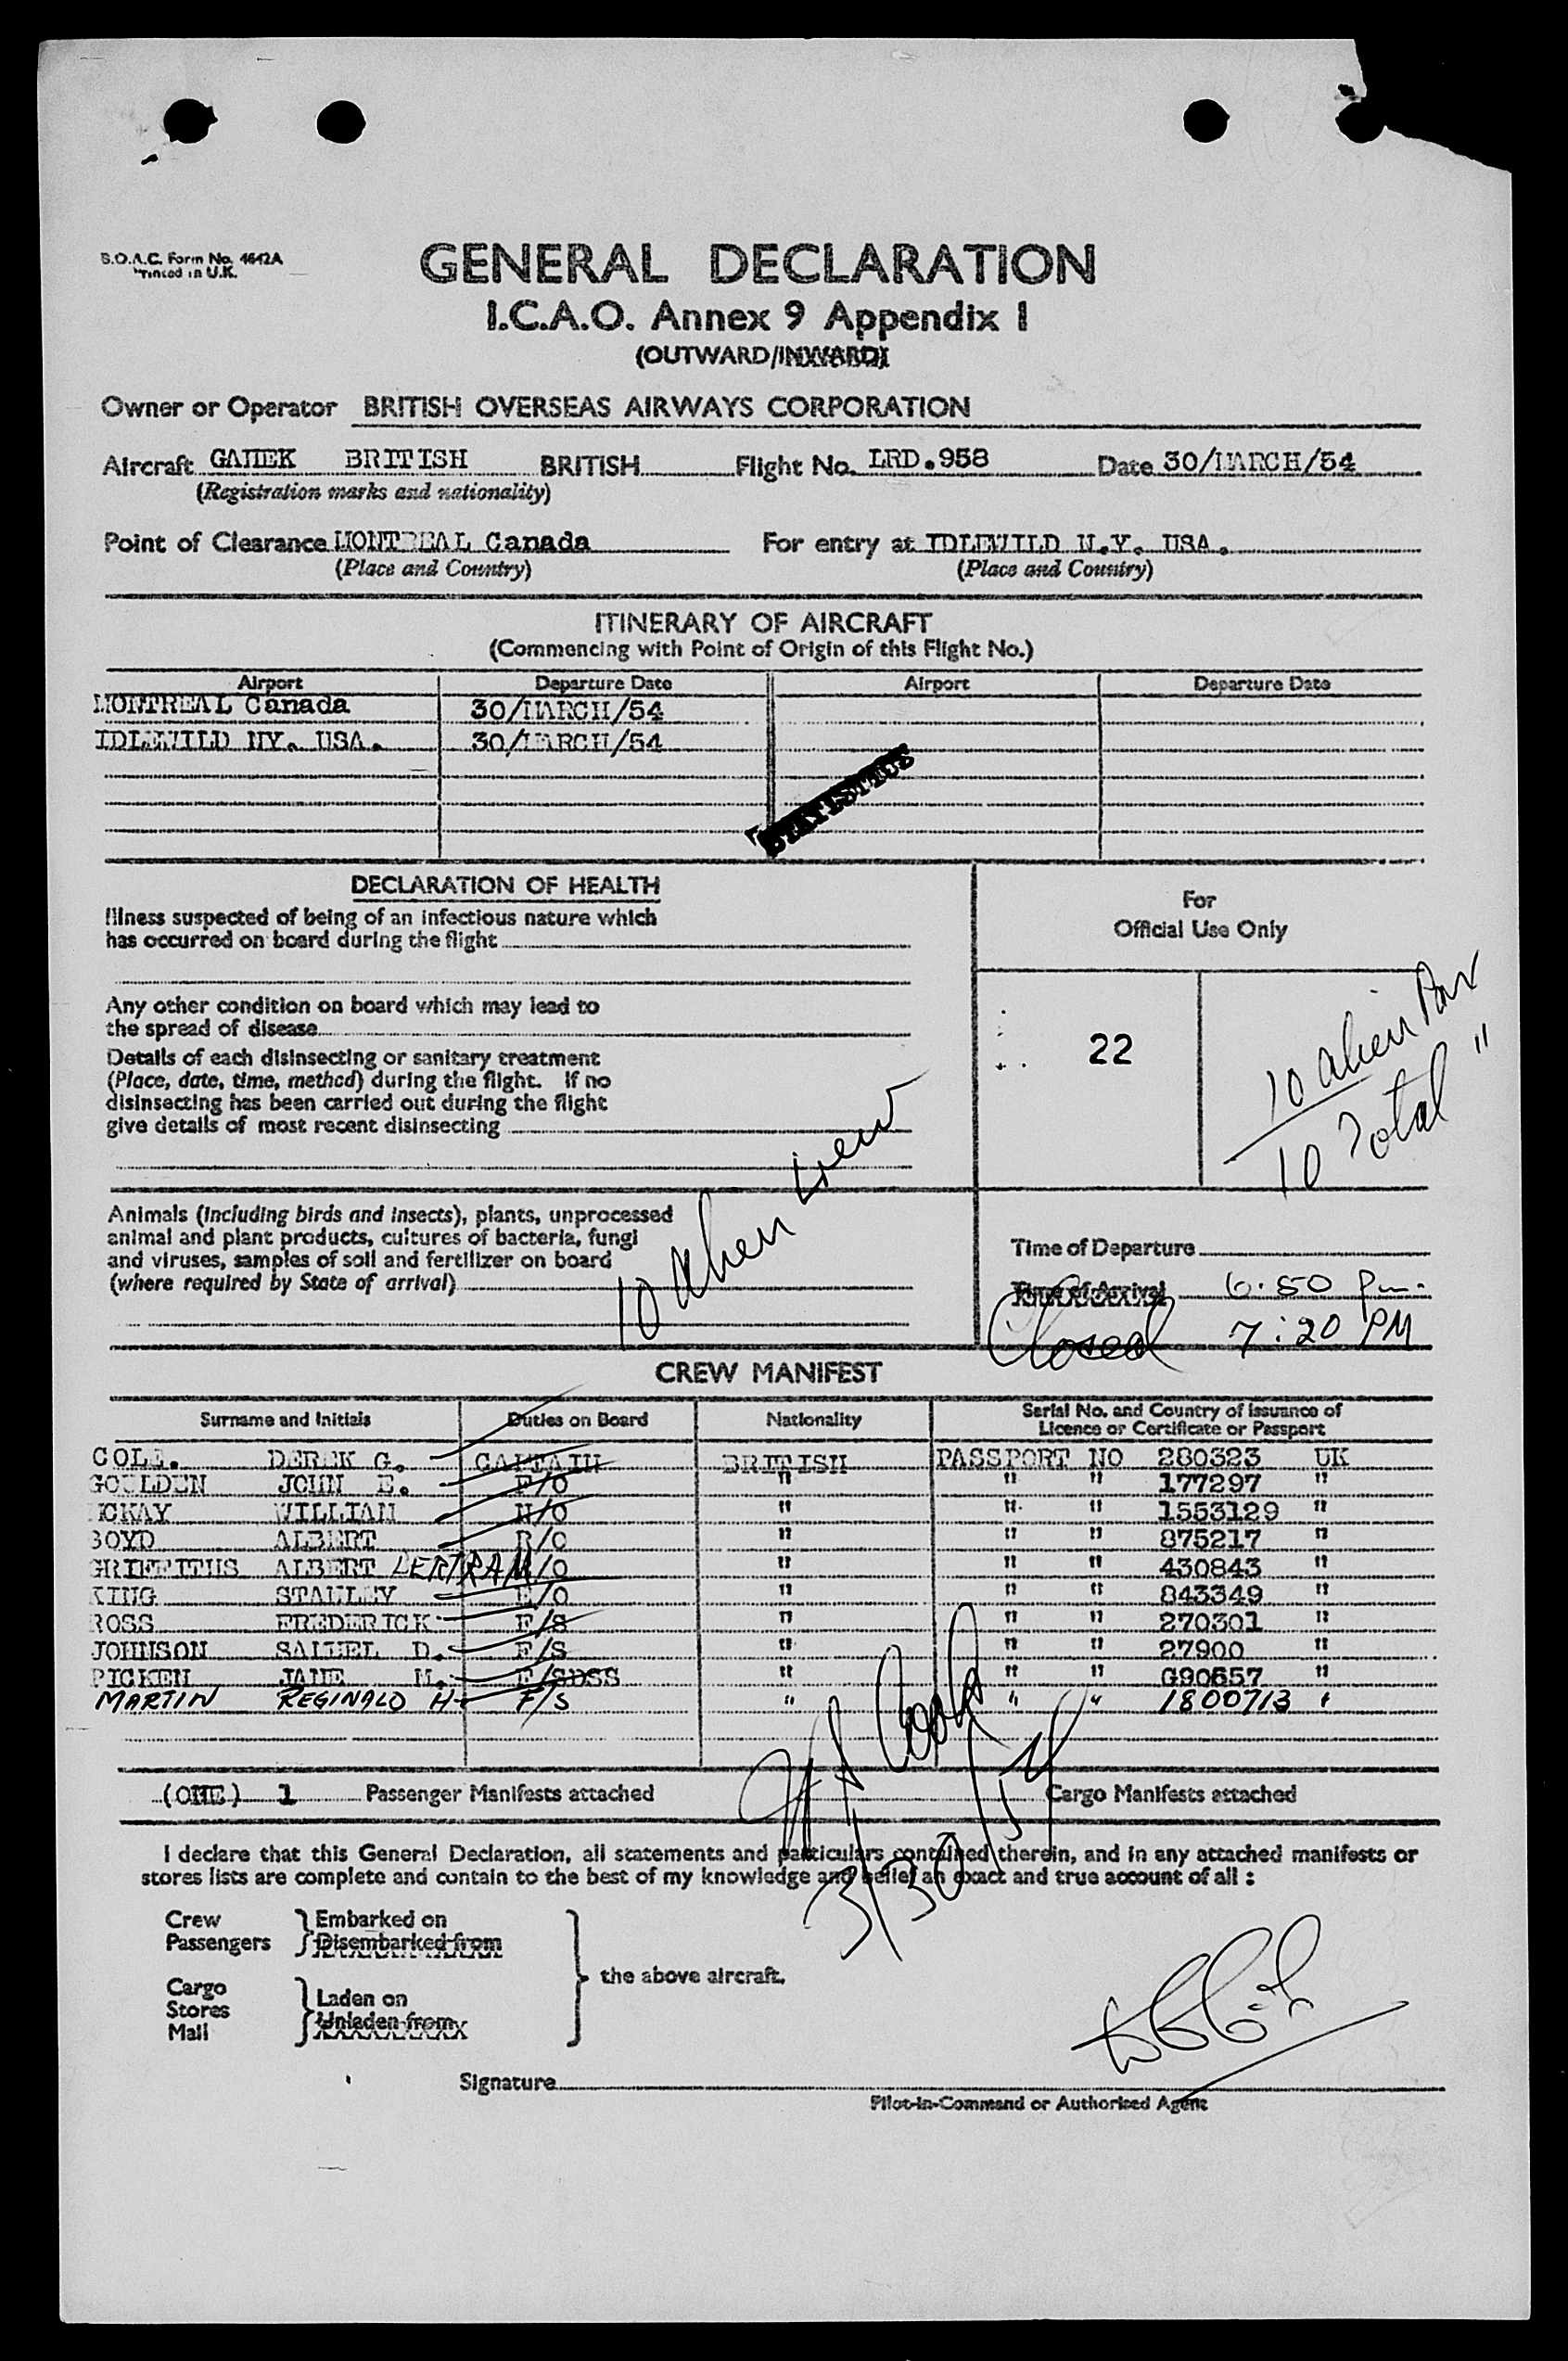 B.O.A.C. Form No. 4642A
Printed in U.K.
GENERAL DECLARATION
I.C.A.O. Annex 9 Appendix I
(OUTWARD/INWARD)
Owner or Operator BRITISH OVERSEAS AIRWAYS CORPORATION
Aircraft BRITISH BRITISH Flight No. LRD.958 Date 30/MARCH/54
(Registration marks and nationality)
Point of Clearance MONTREAL Canada For entry at IDLEWILD N.Y. USA.
(Place and Country) (Place and Country)
ITINERARY OF AIRCRAFT
(Commencing with Point of Origin of this Flight No.)
Airport Departure Date Airport Departure Date
MONTREAL Canada 30/MARCH/54
IDLEWILD NY. USA. 30/MARCH/54
STATISTICS
DECLARATION OF HEALTH
Illness suspected of being of an infectious nature which
has occurred on board during the flight
Any other condition on board which may lead to
the spread of disease
Details of each disinsecting or sanitary treatment
(Place, date, time, method) during the flight. If no
disinsecting has been carried out during the flight
give details of most recent disinsecting
For
Official Use Only
22
10 alien Pax
10 Total "
Animals (including birds and insects), plants, unprocessed
animal and plant products, cultures of bacteria, fungi
and viruses, samples of soil and fertilizer on board
(where required by State of arrival)
10 Alien crew
Time of Departure
Time of Arrival 6.50 Pm.
Closed 7:20 PM
CREW MANIFEST
Surname and Initials Duties on Board Nationality Serial No. and Country of issuance of
Licence or Certificate or Passport
COLE. DEREK G. CAPTAIN BRITISH PASSPORT NO 280323 UK
GOULDEN JOHN E. F/O " " " 177297 "
MCKAY WILLIAM N/O " " " 1553129 "
BOYD ALBERT R/O " " " 875217 "
GRIFFITHS ALBERT BERTRAM /O " " " 430843 "
KING STANLEY E/O " " " 843349 "
ROSS FREDERICK F/S " " " 270301 "
JOHNSON SAMUEL D. F/S " " " 27900 "
PICKEN JANE M. F/SDSS " " " G90657 "
MARTIN REGINALD H F/S " " " 1800713 "
(ONE) 1 Passenger Manifests attached Cargo Manifests attached
3/30/54
I declare that this General Declaration, all statements and particulars contained therein, and in any attached manifests or
stores lists are complete and contain to the best of my knowledge and belief an exact and true account of all :
Crew
Passengers
Embarked on
Disembarked from
Cargo
Stores
Mail
Laden on
Unladen from
the above aircraft.
Signature
Pilot-in-Command or Authorised Agent